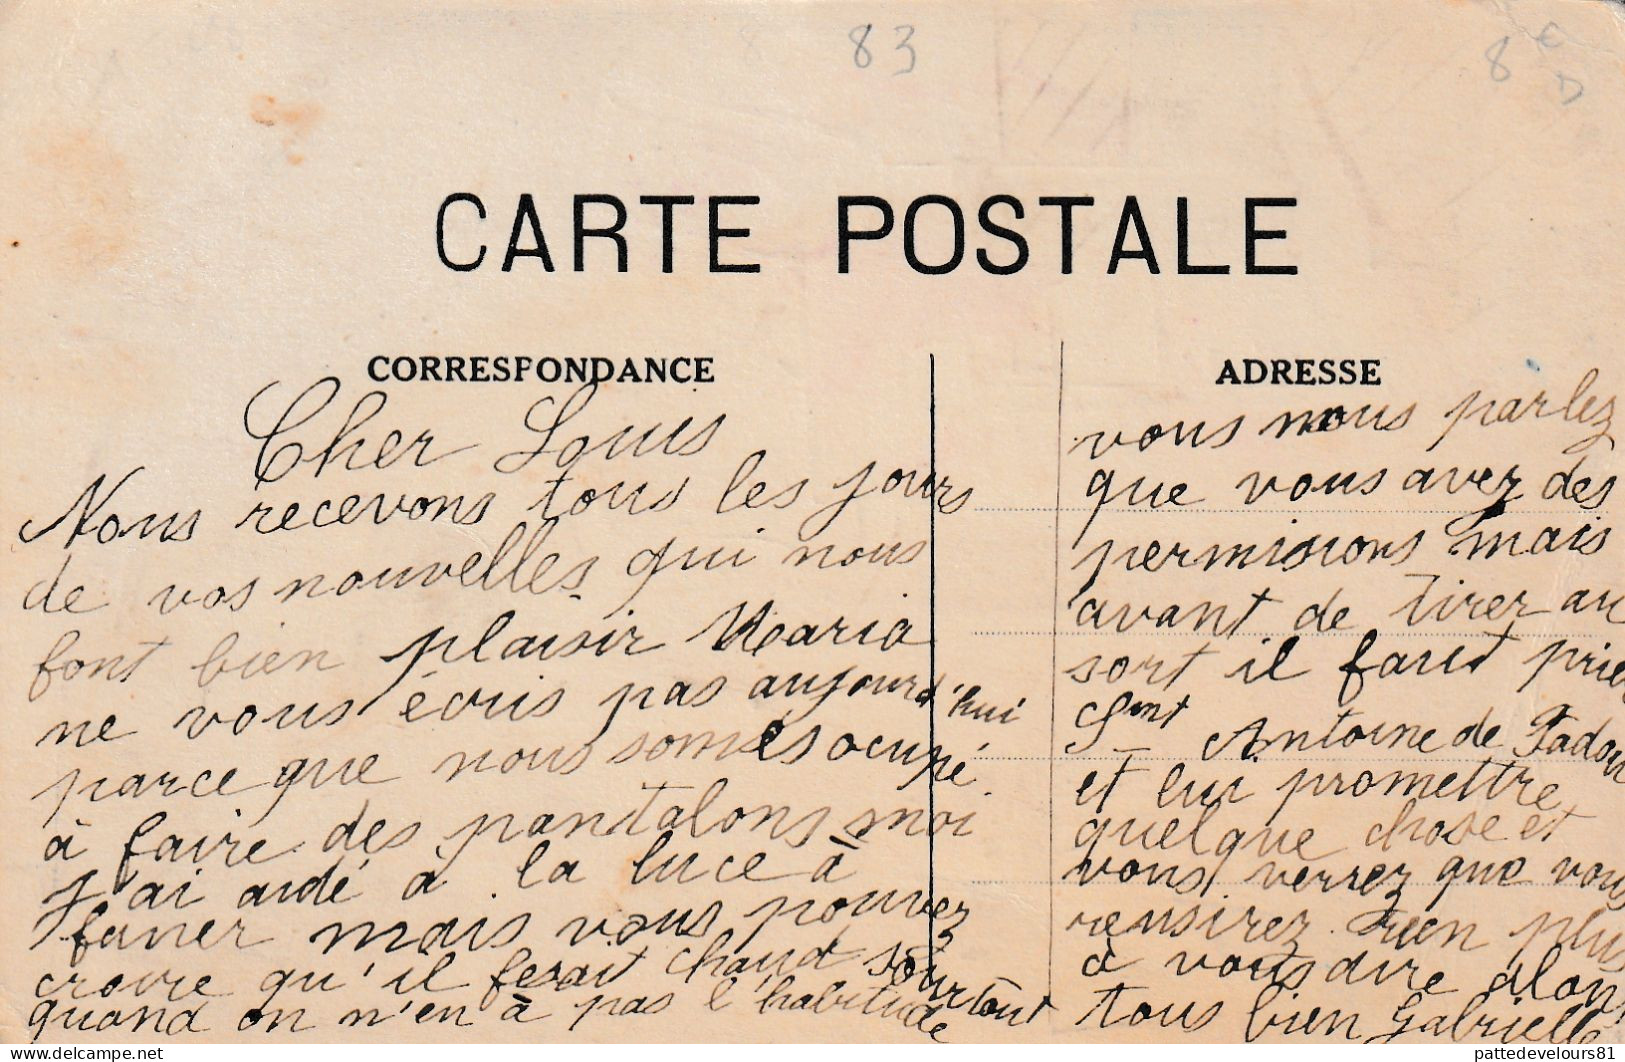 83
8 € D
CARTE POSTALE
CORRESPONDANCE
Cher Louis
Nous recevons tous les jours
de vos nouvelles qui nous
font bien plaisir Maria
ne vous écris pas aujourd'hui
parce que nous somes ocupé
à faire des pantalons moi
j'ai aidé à la luce à
faner mais vous pouvez
croire qu'il fesait chaud sourtout
quand on n'en à pas l'habitude
ADRESSE
vous nous parlez
que vous avez des
permisions mais
avant de tirer au
sort il faut prier
St Antoine de Padou
et lui promettre
quelque chose et
vous verrez que vous
reusirez. Rien plus
à vous dire alon
tous bien Gabrielle
pattedevelours81